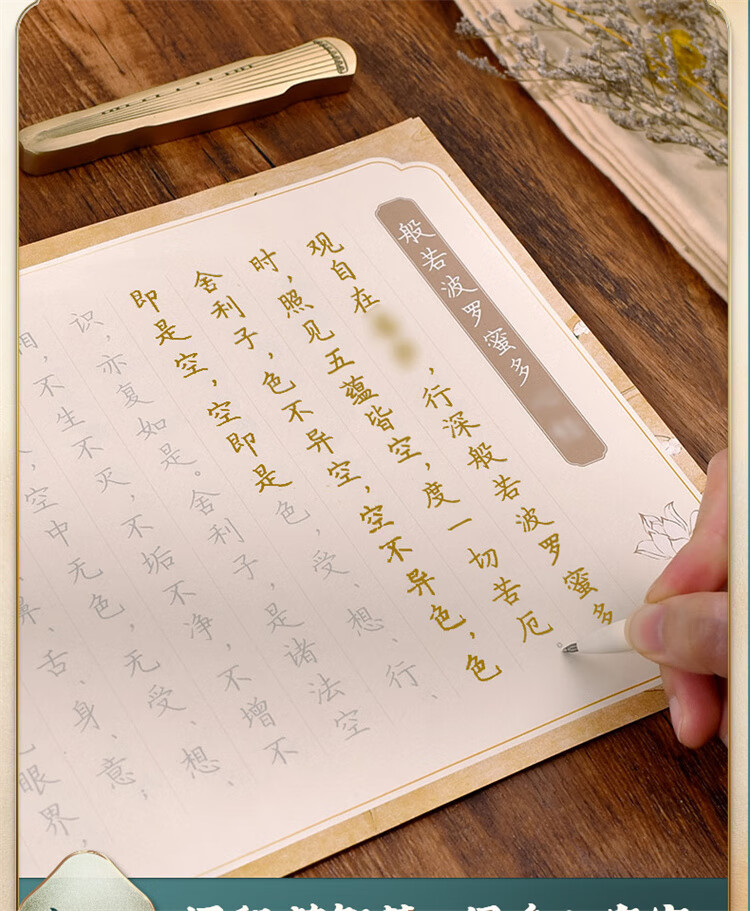 般若波罗蜜多
观自在，行深般若波罗蜜多
时，照见五蕴皆空，度一切苦厄
舍利子，色不异空，空不异色，色
即是空，空即是色，受、想、行、
识，亦复如是。舍利子，是诸法空
相，不生不灭，不垢不净，不增不
空中无色，无受、想、
鼻、舌、身、意；
眼界，